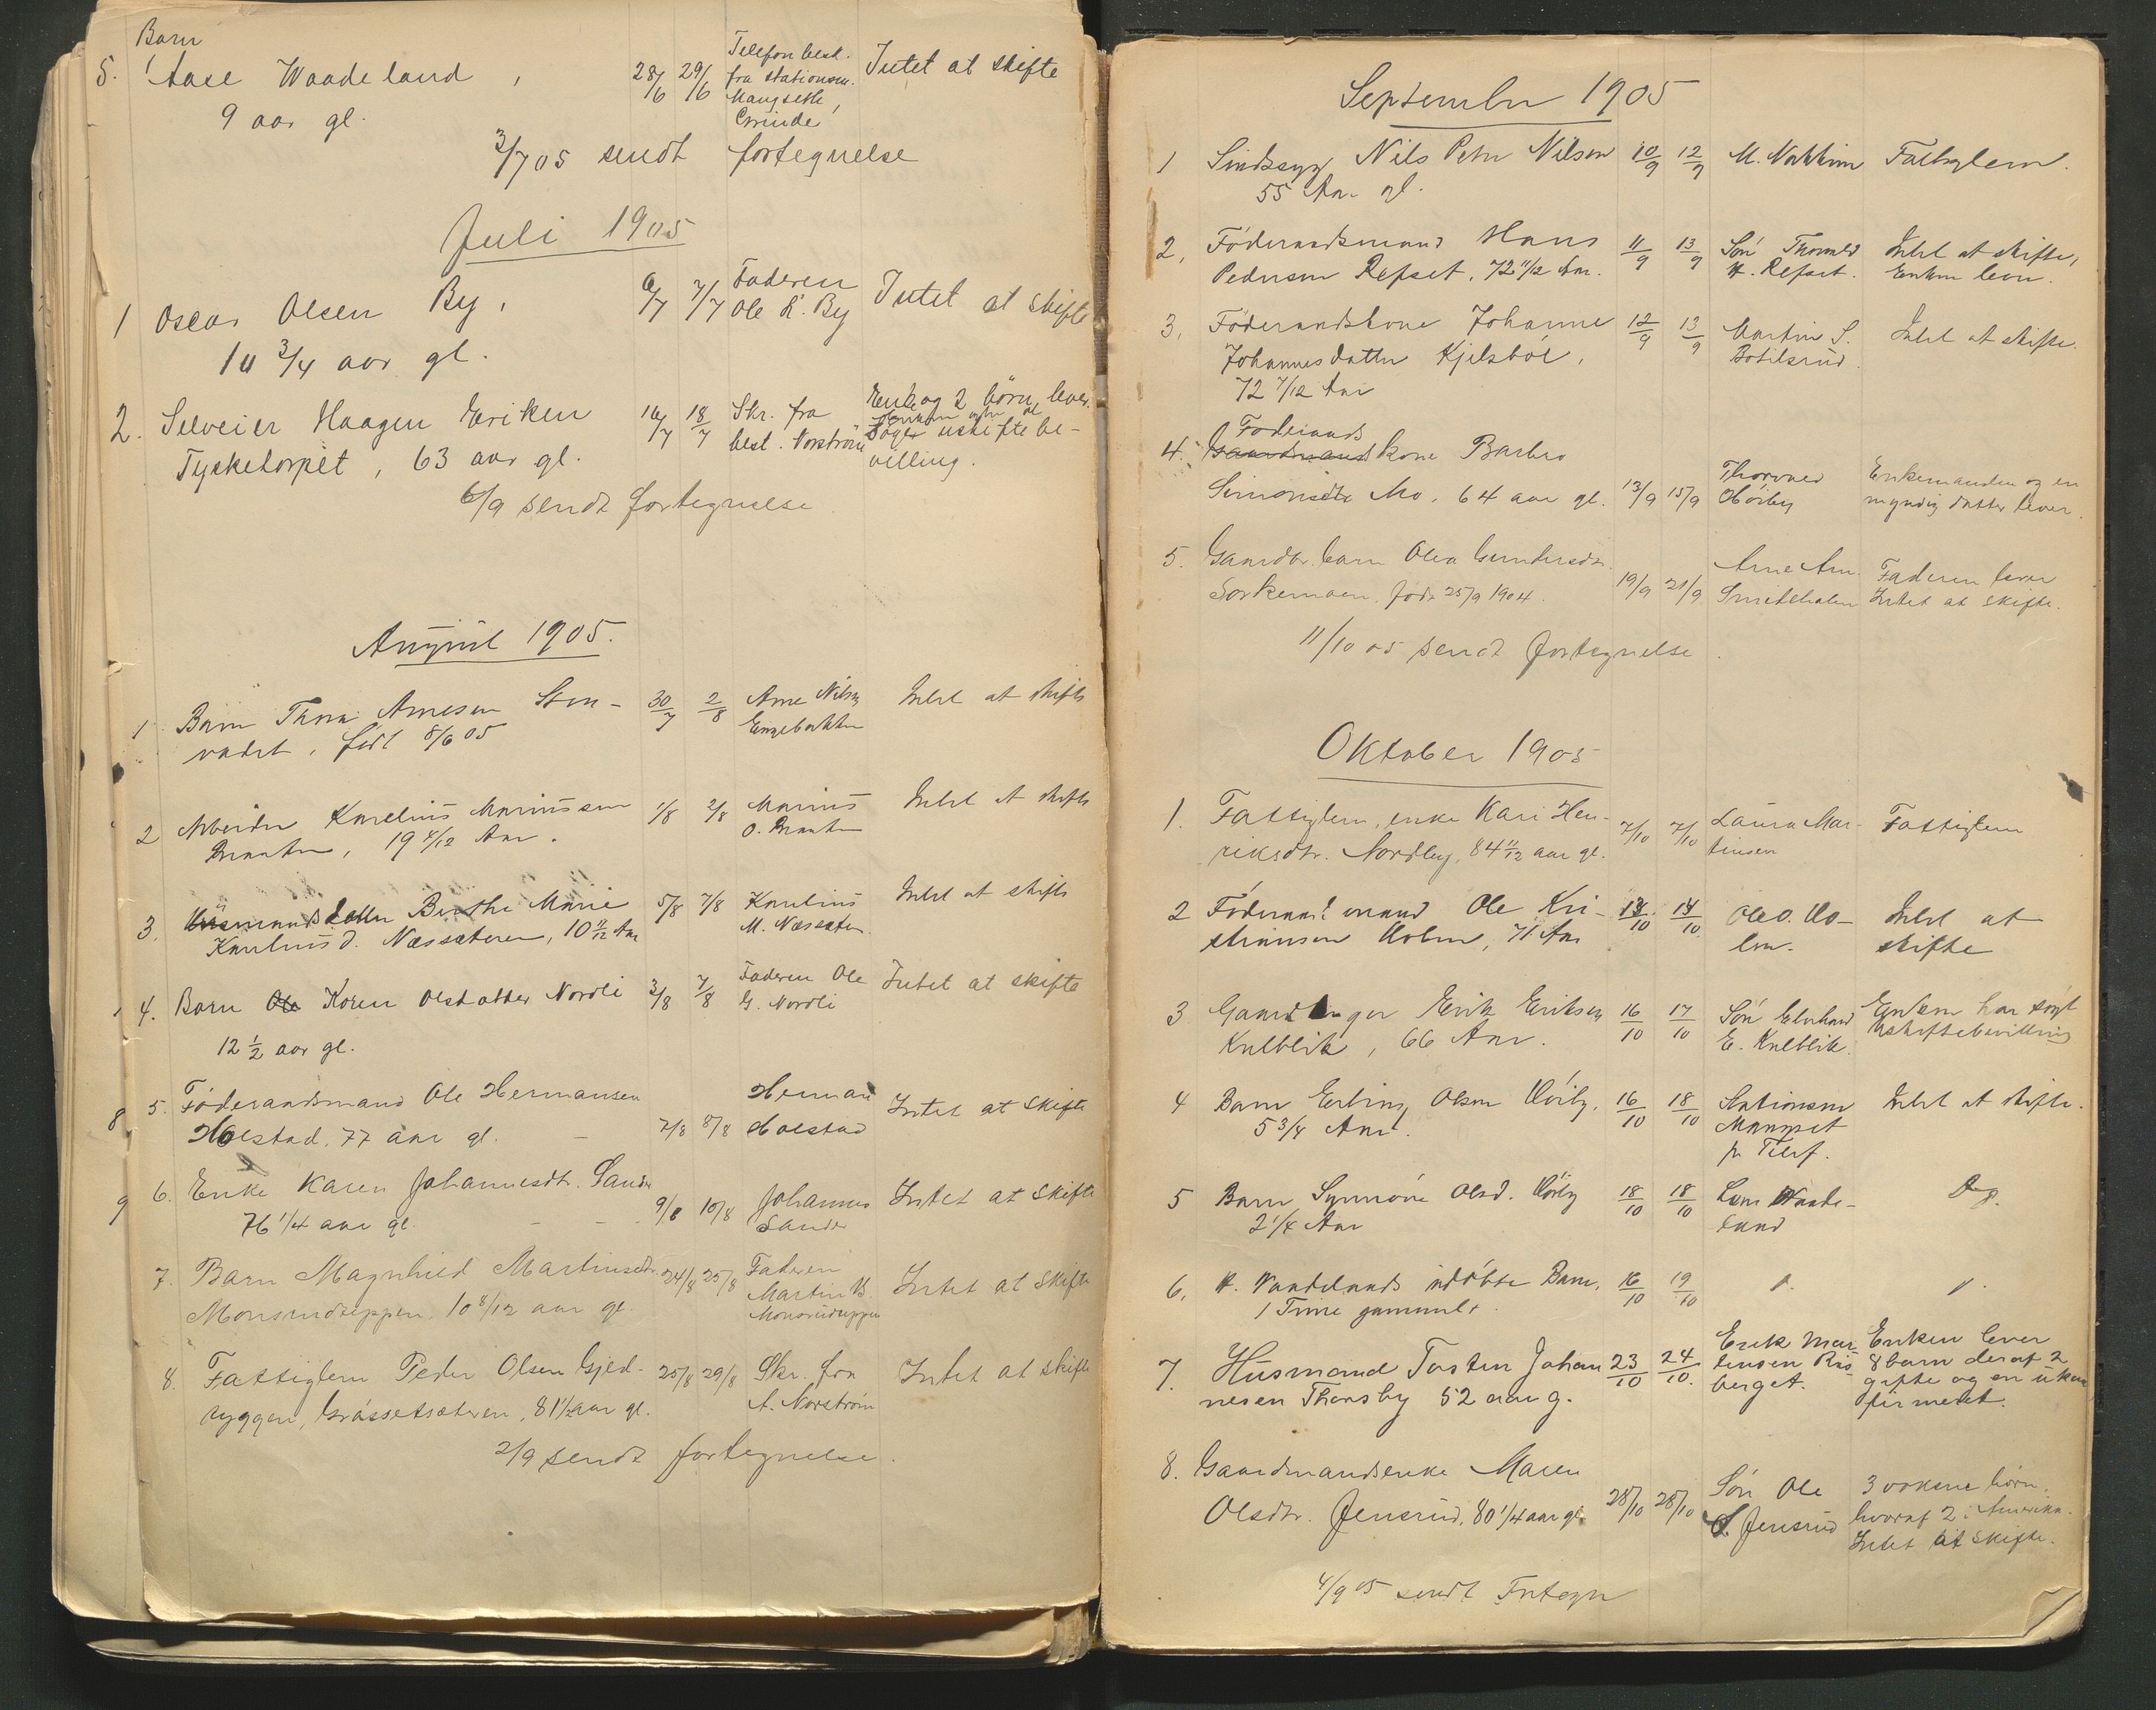 Barn
5. Aase Waadeland, 28/6 29/6 Telefon best. Intet at skifte
9 aar gl. fra stationsm.
Maugseth,
Grinde
3/7 05 sendt fortegnelse
Juli 1905
1 Oscar Olsen By, 6/7 7/7 Faderen Intet at skifte
10 3/4 aar gl. Ole L. By
2. Selveier Haagen Eriksen 16/7 18/7 Skr. fra Enke og 2 börn lever.
Tysketorpet, 63 aar gl. best. Norström söger uskiftebe-
villing.
6/9 sendt fortegnelse
August 1905.
1 Barn Thora Arnesen Sten- 30/7 2/8 Arne Nilsen Intet at skifte
vadet, födt 8/6 05 Engebakken
2 Arbeider Karelius Mariussen 1/8 2/8 Marius Intet at skifte
Braaten, 19 4/12 Aar. O. Braaten
3. Husmandsdatter Berthe Marie 5/8 7/8 Karelius Intet at skifte
Karelius d. Næssæteren, 10 11/12 Aar M. Næssæter.
4. Barn Ole Karen Olsdatter Nordli 3/8 7/8 Faderen Ole Intet at skifte
12 1/2 aar gl. G. Nordli
8 5. Föderaadsmand Ole Hermansen Herman Intet at skifte
Holstad, 77 aar gl. – 7/8 8/8 Holstad
9 6. Enke Karen Johannesdtr. Sander 9/8 10/8 Johannes Intet at skifte
76 1/4 aar gl. – – Sander
7. Barn Magnhild Martinsdtr. 24/8 25/8 Faderen Intet at skifte
Monsrudeppen, 10 8/12 aar gl. Martin B.
Monsrudeppen
8. Fattiglem Peder Olsen Gjed- 25/8 29/8 Skr. fra Intet at skifte
ryggen, Gråssetsæteren, 81 1/2 aar gl. A. Norström
2/9 sendt fortegnelse.
September 1905
1 Sindssyg Nils Peter Nilsen 10/9 12/9 M. Fattiglem.
55 Aar gl.
2, Föderaadsmand Hans 11/9 13/9 Sön Thorvald Intet at skifte,
Pedersen Refset, 72 11/12 Aar. H. Refset. Enken lever.
3, Föderaadskone Johanne 12/9 13/9 Martin S. Intet at skifte.
Johannesdatter Kjelsböl, Botilsrud
72 7/12 Aar
Föderaads
4. Gaardmandskone Barbro
Simonsdtr Mo. 64 aar gl. 13/9 15/9 Thorvald Enkemanden og en
Hörby myndig datter lever.
5. Gaardbr. barn Olea Gundersdtr. 19/9 21/9 Arne Arn. Faderen lever
Sorkemoen. född 25/9 1904. Smedstuen Intet at skifte.
11/10 05 sendt fortegnelse.
Oktober 1905
1. Fattiglem, enke Kari Hen- 7/10 7/10 Laura Mar- Fattiglem
riksdtr. Nordby, 84 11/12 aar gl. tinsen
2 Föderaadsmand Ole Kri- 13/10 14/10 Ole O. Ho- Intet at
stiansen Holm, 71 Aar lm. skifte
3 Gaardbruger Erik Eriksen 16/10 17/10 Sön Edvard Enken har sögt
Kulblik, 66 Aar. E. Kulblik. Uskiftebevilling
4 Barn Erling Olsen Hörby, 16/10 18/10 Stationsm Intet at skifte.
5 3/4 Aar. Maugset
pr. Telef.
5 Barn Synnöve Olsd. Hörby 18/10 18/10 Lars Waade- Do.
2 1/4 Aar land
6, H. Vaadelands udöbte Barn, 16/10 19/10 " "
1 Time gammelt.
7. Husmand Torsten Johan 23/10 24/10. Erik Mar- Enken lever
nesen Thorsby 52 aar g. tinsen Ris- 8 barn deraf 2
berget. gifte og en ukon
firmeret.
8. Gaardmandsenke Maren
Olsdtr. Jensrud, 80 1/4 aar gl. 28/10 28/10 Sön Ole 3 voksne börn,
O. Jensrud hvoraf 2 i Amerika.
Intet at skifte.
4/9 05 sendt Fortegn